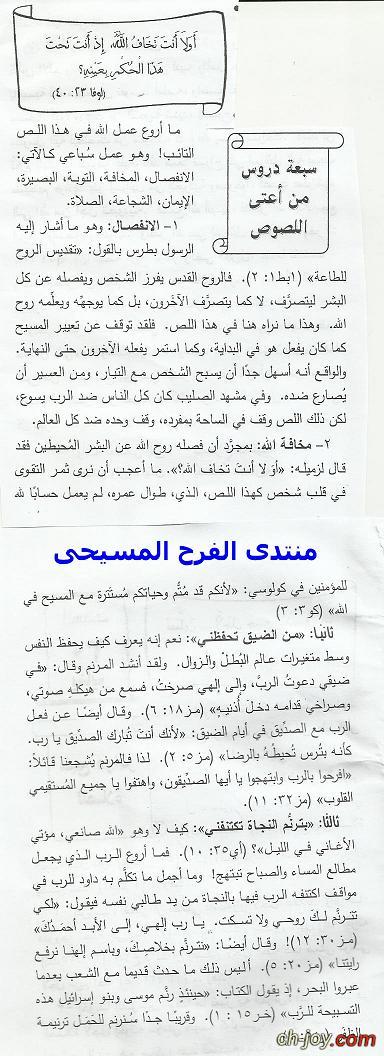 أَوَلاَ أَنتَ تَخَافُ اللَّهَ، إِذْ أَنتَ تَحتَ
هَذَا الْحُكْمِ بِعَيْنِهِ؟
(لوقا ٢٣: ٤٠)
سبعة دروس
من أعتى
اللصوص
ما أروع عمل الله في هذا اللص
التائب! وهو عمل سُباعي كالآتي:
الانفصال، المخافة، التوبة، البصيرة،
الإيمان، الشجاعة، الصلاة.
١- الانفصال: وهو ما أشار إليه
الرسول بطرس بالقول: «تقديس الروح
للطاعة» (١بط١: ٢). فالروح القدس يفرز الشخص ويفصله عن كل
البشر ليتصرَّف، لا كما يتصرَّف الآخَرون، بل كما يوجهه ويعلّمه روح
الله. وهذا ما نراه هنا في هذا اللص. فلقد توقف عن تعيير المسيح
كما كان يفعل هو في البداية، وكما استمر يفعله الآخرون حتى النهاية.
والواقع أنه أسهل جدًا أن يسبح الشخص مع التيار، ومن العسير أن
يُصارع ضده. وفي مشهد الصليب كان كل الناس ضد الرب يسوع،
لكن ذلك اللص وقف في الساحة بمفرده، وقف وحده ضد كل العالم.
٢- مخافة الله: بمجرَّد أن فصله روح الله عن البشر المُحيطين فقد
قال لزميله: «أوَ لا أنتَ تخاف الله؟». ما أعجب أن نرى ثمر التقوى
في قلب شخص كهذا اللص، الذي، طوال عمره، لم يعمل حسابًا لله
منتدى الفرح المسيحى
للمؤمنين في كولوسي: «لأنكم قد مُتُّم وحياتكم مُستترة مع المسيح في
الله» (كو٣: ٣)
ثانيًا: «من الضيق تحفظني»: نعم إنه يعرف كيف يحفظ النفس
وسط متغيرات عالم البُطل والزوال. ولقد أنشد المرنم وقال: «في
ضيقي دعوتُ الربَّ، وإلى إلهي صرختُ، فسمع من هيكله صوتي،
وصراخي قدامه دخل أُذنيهِ» (مز١٨: ٦). وقال أيضًا عن فعل
الرب مع الصدِّيق في أيام الضيق: «لأنك أنتَ تُبارك الصدِّيق يا رب.
كأنه بتُرس تُحيطُهُ بالرضا» (مز٥: ١٢). لذا فالمرنم يُشجعنا قائلاً:
«افرحوا بالرب وابتهجوا يا أيها الصدِّيقون، واهتفوا يا جميع المُستقيمي
القلوب» (مز٣٢: ١١).
ثالثًا: «بترنُّم النجاة تكتنفني»: كيف لا وهو «الله صانعي، مؤتي
الأغاني في الليل»؟ (أي٣٥: ١٠). فما أروع الرب الذي يجعل
مطالع المساء والصباح تبتهج! وما أجمل ما تكلَّم به داود للرب في
مواقف اكتنفه الرب فيها بالنجاة من يد طالبي نفسه فيقول: «لكي
تترنَّم لكَ روحي ولا تسكت. يا رب إلهي، إلى الأبد أحمَدُكَ»
(مز٣٠: ١٢)! وقال أيضًا: «نترنَّم بخلاصِكَ، وباسم إلهنا نرفع
رايتنا» (مز٢٠: ٥). أليس ذلك ما حدث قديما مع الشعب بعدما
عبروا البحر، إذ يقول الكتاب: «حينئذٍ رنَّم موسى وبنو إسرائيل هذه
التسبيحة للرَّب» (خر١٥: ١). وقريبًا جدًا سنرنم للحَمَل ترنيمة
dh-joy.com